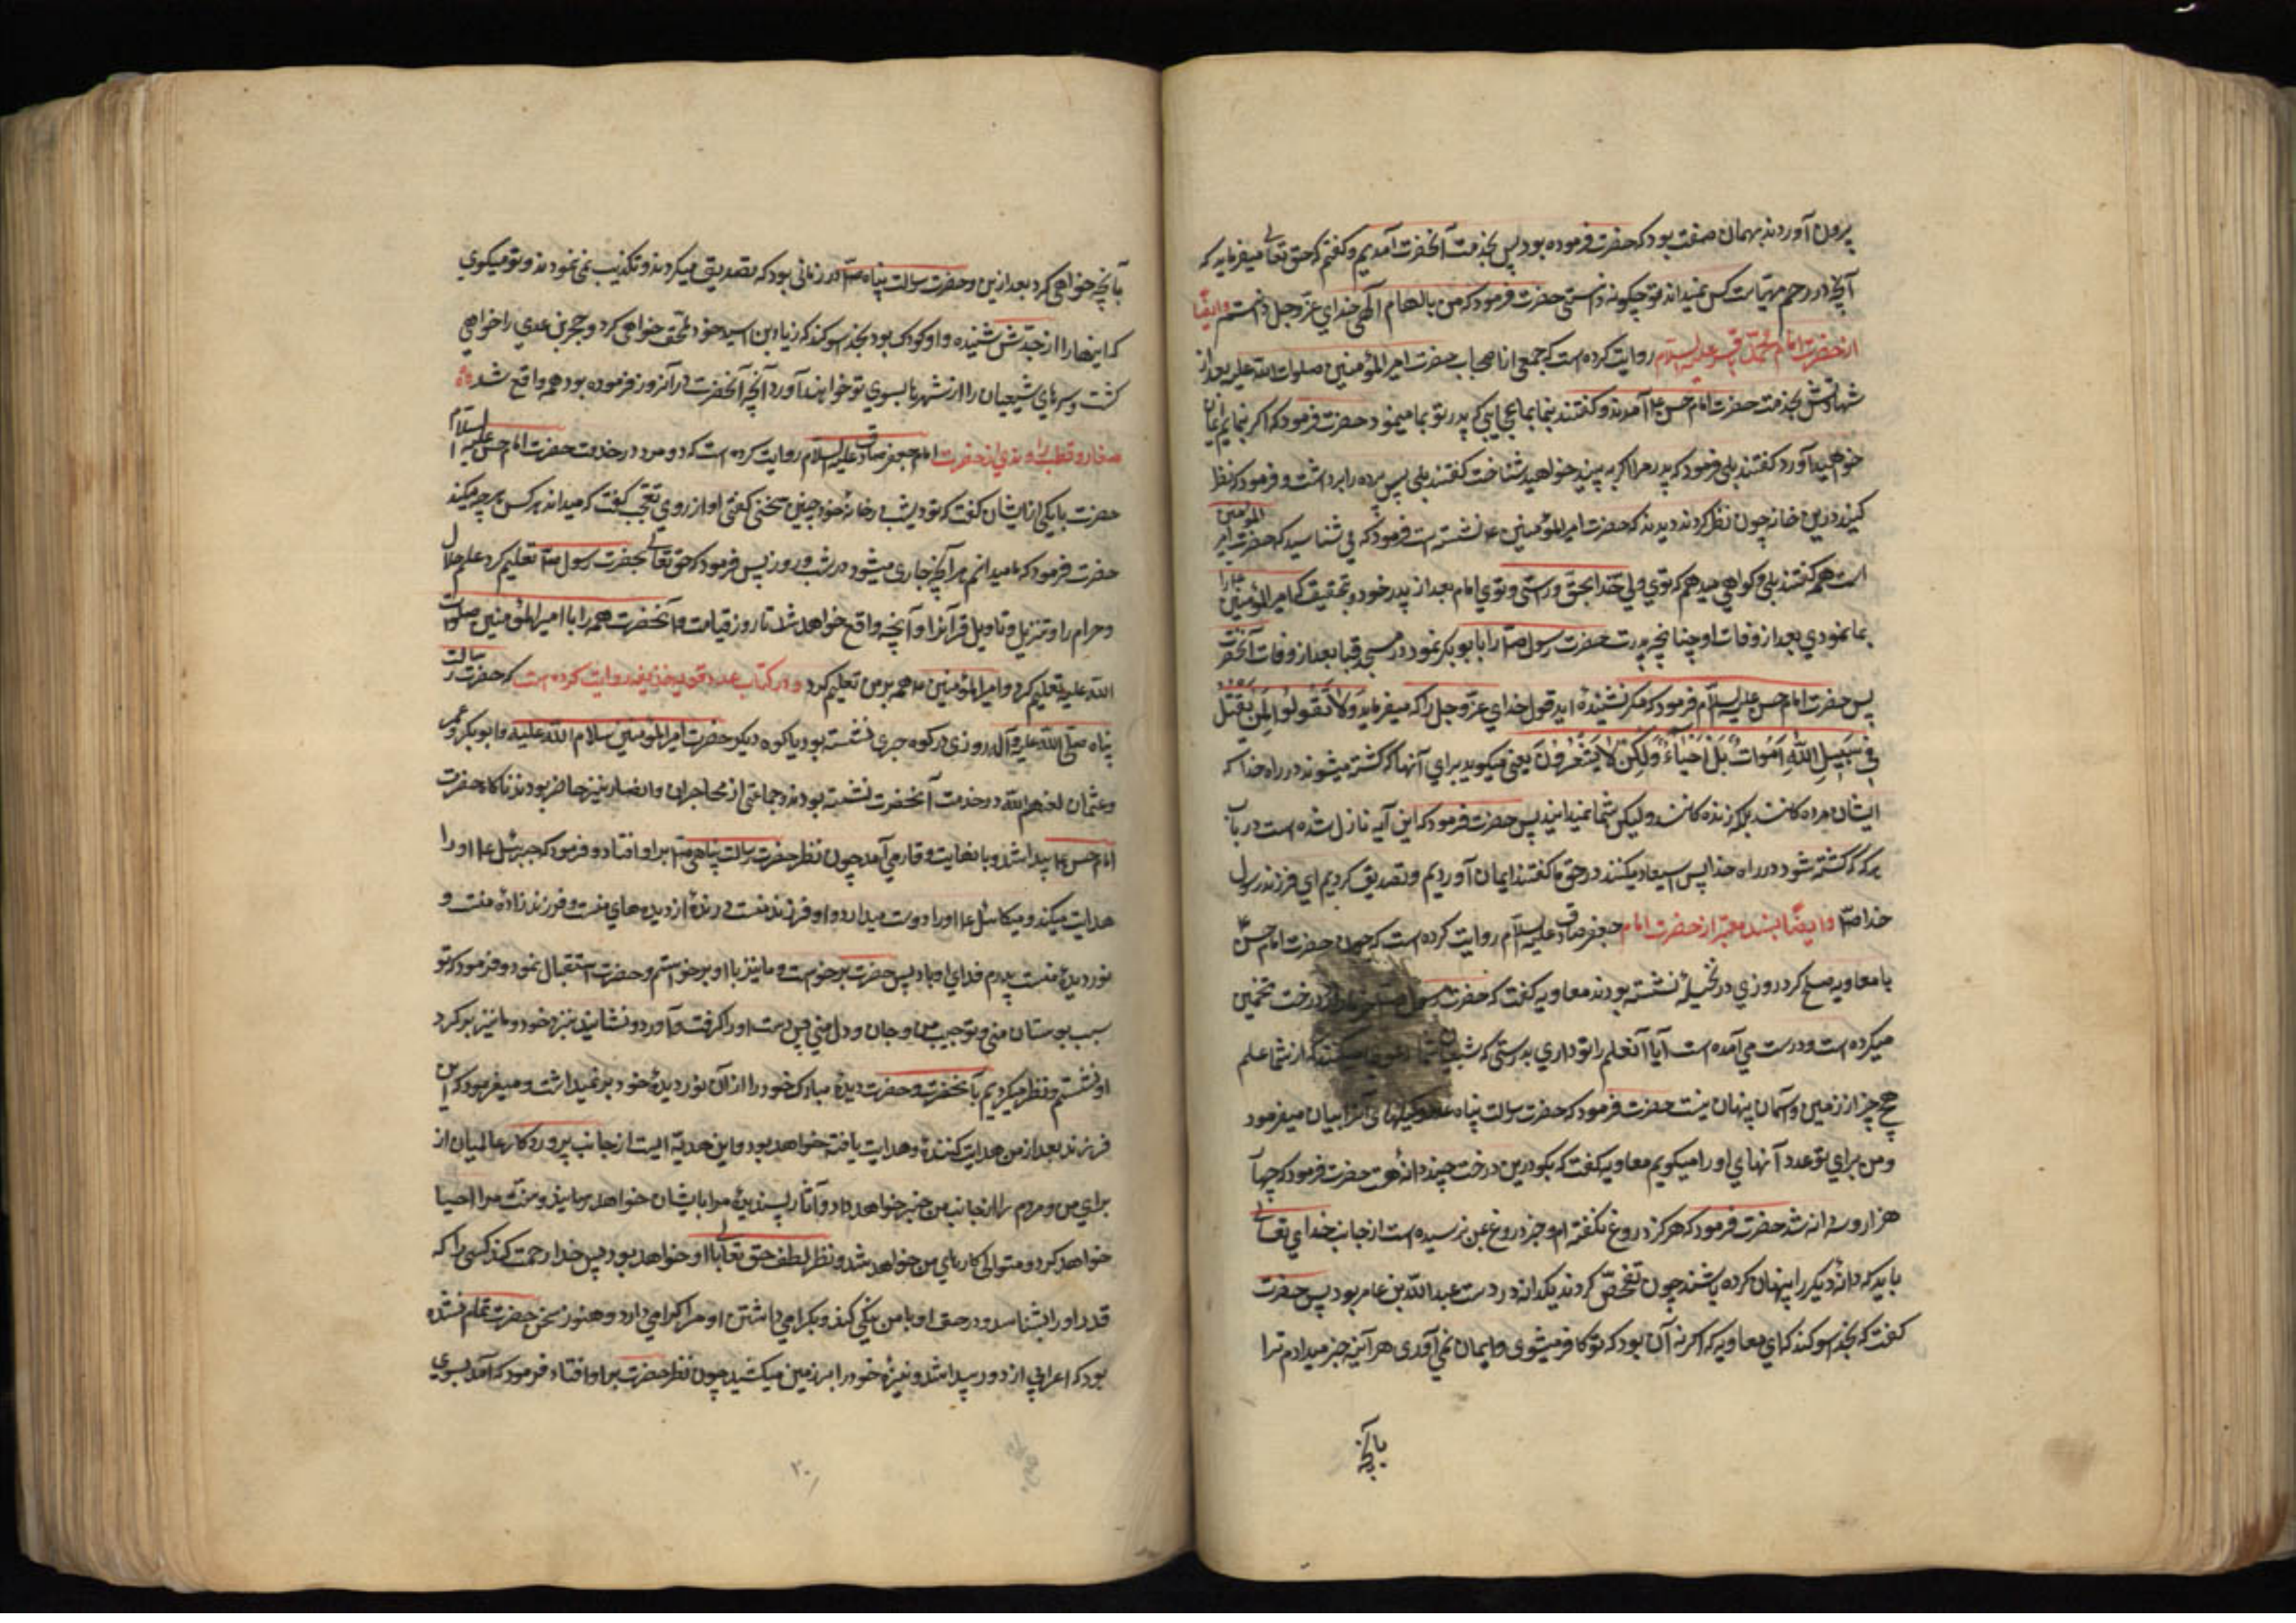 بیرون آوردند بهمان صفت بود که حضرت فرموده بود پس بخدمت آنحضرت آمدیم و گفتم که حق تعالی میفرماید که
آنچه در رحم مهیاست کس نمیداند تو چگونه دانستی حضرت فرمود که من بالهام الهی خدای عزوجل دانستم وایضا
از حضرت امام محمد باقر علیه السلام روایت کرده است که جمعی از اصحاب حضرت امیرالمؤمنین صلوات الله علیه بعد از
شهادتش بخدمت حضرت امام حسن ع آمدند و گفتند بنما بما عجایبی که پدر تو بما مینمود حضرت فرمود که اگر بنمایم ایمان
خواهید آورد گفتند بلی فرمود که پدر مرا اگر به بیند خواهید شناخت گفتند بلی پس پرده را برداشت و فرمود که نظر
کنید درین خانه چون نظر کردند دیدند که حضرت امیرالمؤمنین ع نشسته است فرمود که می شناسید که حضرت امیر المؤمنین
است همه گفتند بلی و گواهی میدهم که توی ولی خدا بحق و راستی و توی امام بعد از پدر خود و بتحقیق که امیرالمؤمنین را
بما نمودی بعد از وفات او چنانچه پدرت حضرت رسول ص را بابوبکر نمود در مسجد قبا بعد از وفات آنحضرت
پس حضرت امام حسن علیه السلام فرمود که مگر نشنیده اید قول خدای عزوجل را که میفرماید وَلا تَقُولُوا لِمَن يُقْتَلُ
فِي سَبِيلِ اللهِ أَمْوَاتٌ بَلْ أَحْيَاءٌ وَلَكِنْ لا يَشْعُرُونَ یعنی میگوید برای آنها که کشته میشوند در راه خدا که
ایشان مرده کانند بلکه زنده کانند ولیکن شما نمیدانید پس حضرت فرمود که این آیه نازل شده است در باب
هر که کشته شود در راه خدا پس استبعاد میکنند در حق ما گفتند ایمان آوردیم و تصدیق کردیم ای فرزند رسول
خدا ص وایضا بسند معتبر از حضرت امام جعفر صادق علیه السلام روایت کرده است که چون حضرت امام حسن ع
با معاویه صلح کرد روزی در نخیله نشسته بودند معاویه گفت که حضرت رسول درخت تخمین
میکرده است و درست می آمده است آیا آنعلم را تو داری بدرستی که شیعیان شما که از شما علم
هیچ چیز از زمین و آسمان پنهان نیست حضرت فرمود که حضرت رسالت پناه عدد کیلهای آنرا بیان میفرمود
و من برای تو عدد آنهای او را میگویم معاویه گفت که بگو درین درخت چند دانه هست حضرت فرمود که چهار
هزار و سه دانه شد حضرت فرمود که هرگز دروغ نگفته ام و خبر دروغ بمن نرسیده است از جانب خدای تعالی
باید که دانه دیگر را پنهان کرده باشند چون تفحص کردند یکدانه در دست عبدالله بن عامر بود پس حضرت
گفت که بخدا سوکند که ای معاویه که اگر نه آن بود که تو کافر میشوی و ایمان نمی آوری هر آینه خبر میدادم ترا
بآنچه
بآنچه خواهی کرد بعد ازین و حضرت رسالت پناه ص در زمانی بود که تصدیق میکردند و تکذیب نمی نمودند و تو میگوی
که اینها را از جدش شنیده و او کودک بود بخدا سوکند که زیاد بن اسید خود ملحق خواهی کرد و حجر بن عدی را خواهی
کشت و سرهای شیعیان را از شهرها بسوی تو خواهند آورد آنچه آنحضرت در آنروز فرموده بود همه واقع شد
صفار و قطب راوندی از حضرت امام جعفر صادق علیه السلام روایت کرده است که دو مرد در خدمت حضرت امام حسن علیه السلام
حضرت با یکی از ایشان گفت که تو دیشب در خانه خود چنین سخنی گفتی او از روی تعجب گفت که میداند هر کس هر چه میکند
حضرت فرمود که ما میدانیم هر آنچه جاری میشود در شب و روز پس فرمود که حق تعالی بحضرت رسول ص تعلیم کرد علم حلال
و حرام را و تنزیل و تاویل قرآنرا و آنچه واقع خواهد شد تا روز قیامت و آنحضرت همه را با امیرالمؤمنین صلوات
الله علیه تعلیم کرد و امیرالمؤمنین ع همه بر من تعلیم کرد و در کتاب عدد قویه از حذیفه روایت کرده است که حضرت رسالت
پناه صلی الله علیه و آله روزی در کوه حری نشسته بود یا کوه دیگر حضرت امیرالمؤمنین سلام الله علیه و ابوبکر و عمر
و عثمان لعنهم الله در خدمت آنحضرت نشسته بودند و جماعتی از مهاجران و انصار نیز حاضر بودند ناگاه حضرت
امام حسن ع پیدا شد و با نهایت وقار می آمد چون نظر حضرت رسالت پناهی ص بر او افتاد و فرمود که جبرئیل ع او را
هدایت میکند و میکائیل ع او را دوست میدارد و او فرزند منست و زنده از دیده های منست و فرزند زاده منست و
نور دیده منست پدرم فدای او باد پس حضرت برخواست و ما نیز با او برخواستیم و حضرت استقبال نمود و فرمود که تو
سیب بوستان منی و تو حبیب من و جان و دل منی پس دست او را گرفت و آورد و نشانید نزد خود و ما نیز بر گرد
او نشستیم و نظر میکردیم بآنحضرت و حضرت دیده مبارک خود را از آن نور دیده خود بر نمیداشت و میفرمود که این
فرزند بعد از من هدایت کننده و هدایت یافته خواهد بود و این هدیه ایست از جانب پروردگار عالمیان از
برای من و مردم را از جانب من خبر خواهد داد و آثار پسندیده مرا بایشان خواهد رسانید و سنت مرا احیا
خواهد کرد و متوالی کارهای من خواهد شد و نظر لطف حق تعالی با او خواهد بود پس خدا رحمت کند کسی را که
قدر او را بشناسد و در حق او با من نیکی کند و بگرامی داشتن او مرا گرامی دارد و هنوز سخن حضرت تمام نشده
بود که اعرابی از دور پیدا شد و نیزه خود را بر زمین میکشید چون نظر حضرت بر او افتاد فرمود که آمد بسوی
۲۰